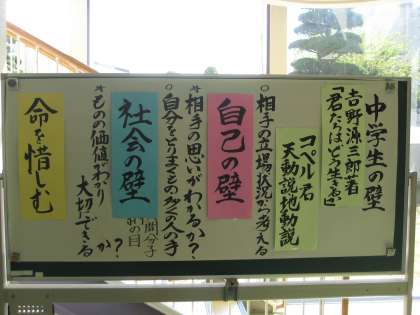 中学生の壁
吉野源三郎著
「君たちはどう生きるか」
コペル君
天動説地動説
○相手の立場、状況から考える
自己の壁
*相手の思いがわかるか?
○自分をとりまく多くの人の手
社会の壁
網の目
分子
?
*ものの価値がわかり
大切にできるか
命を惜しむ